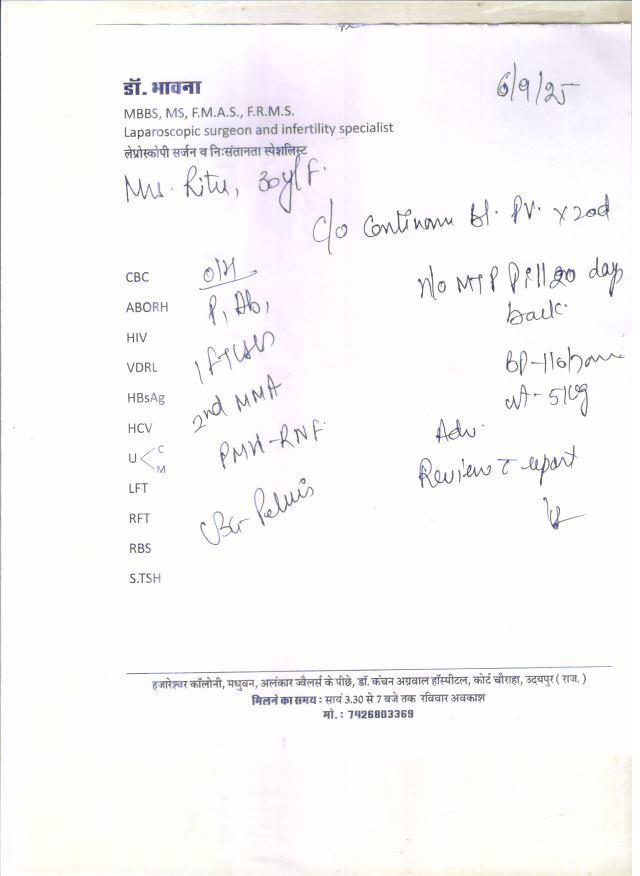 डॉ. भावना
6/9/25
MBBS, MS, F.M.A.S., F.R.M.S.
Laparoscopic surgeon and infertility specialist
लेप्रोस्कोपी सर्जन व निःसंतानता स्पेशलिस्ट
Mrs. Ritu, 30y/F.
c/o Continuous bl. PV. x 20d
CBC
O/H
H/o MTP Pill 20 days
back.
ABORH
P1 Ab1
HIV
VDRL
BP-110/
HBsAg
2nd MMA
wt-51kg
HCV
PMH-RNF
Adv.
U C
M
Review c report
LFT
RFT
USG-Pelvis
RBS
S.TSH
हजारेश्वर कॉलोनी, मधुवन, अलंकार ज्वैलर्स के पीछे, डॉ. कंचन अग्रवाल हॉस्पीटल, कोर्ट चौराहा, उदयपुर ( राज. )
मिलने का समय : सायं 3.30 से 7 बजे तक रविवार अवकाश
मो. : 7426803369